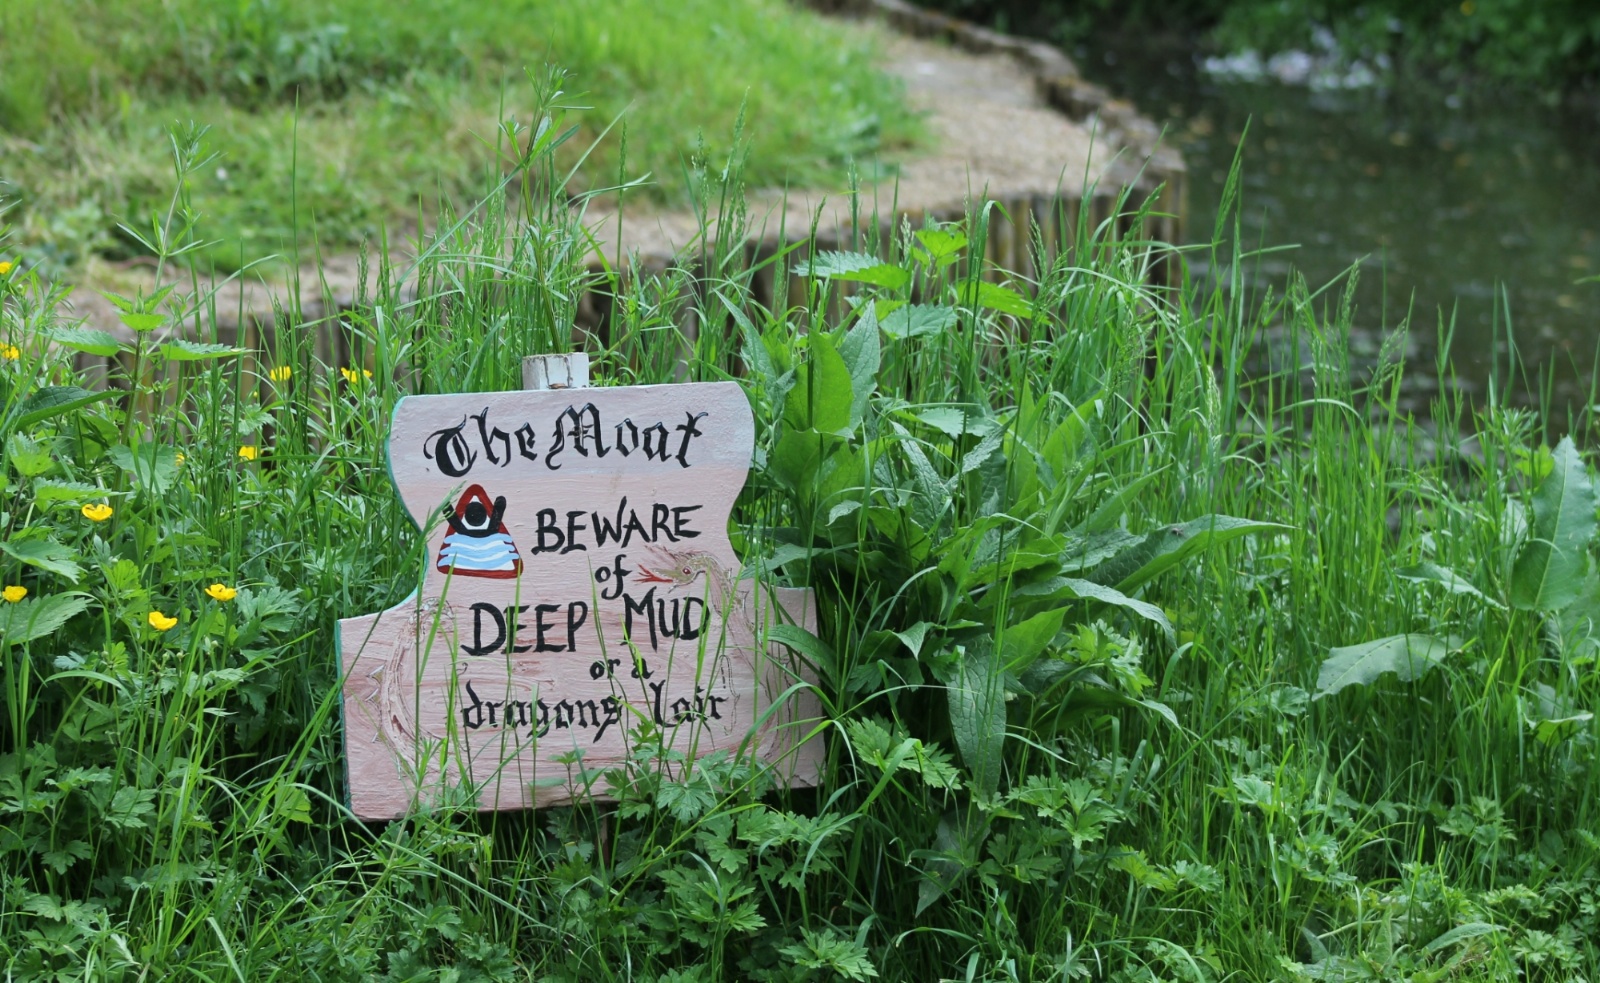 The Moat
BEWARE
of
DEEP MUD
or a
dragons lair